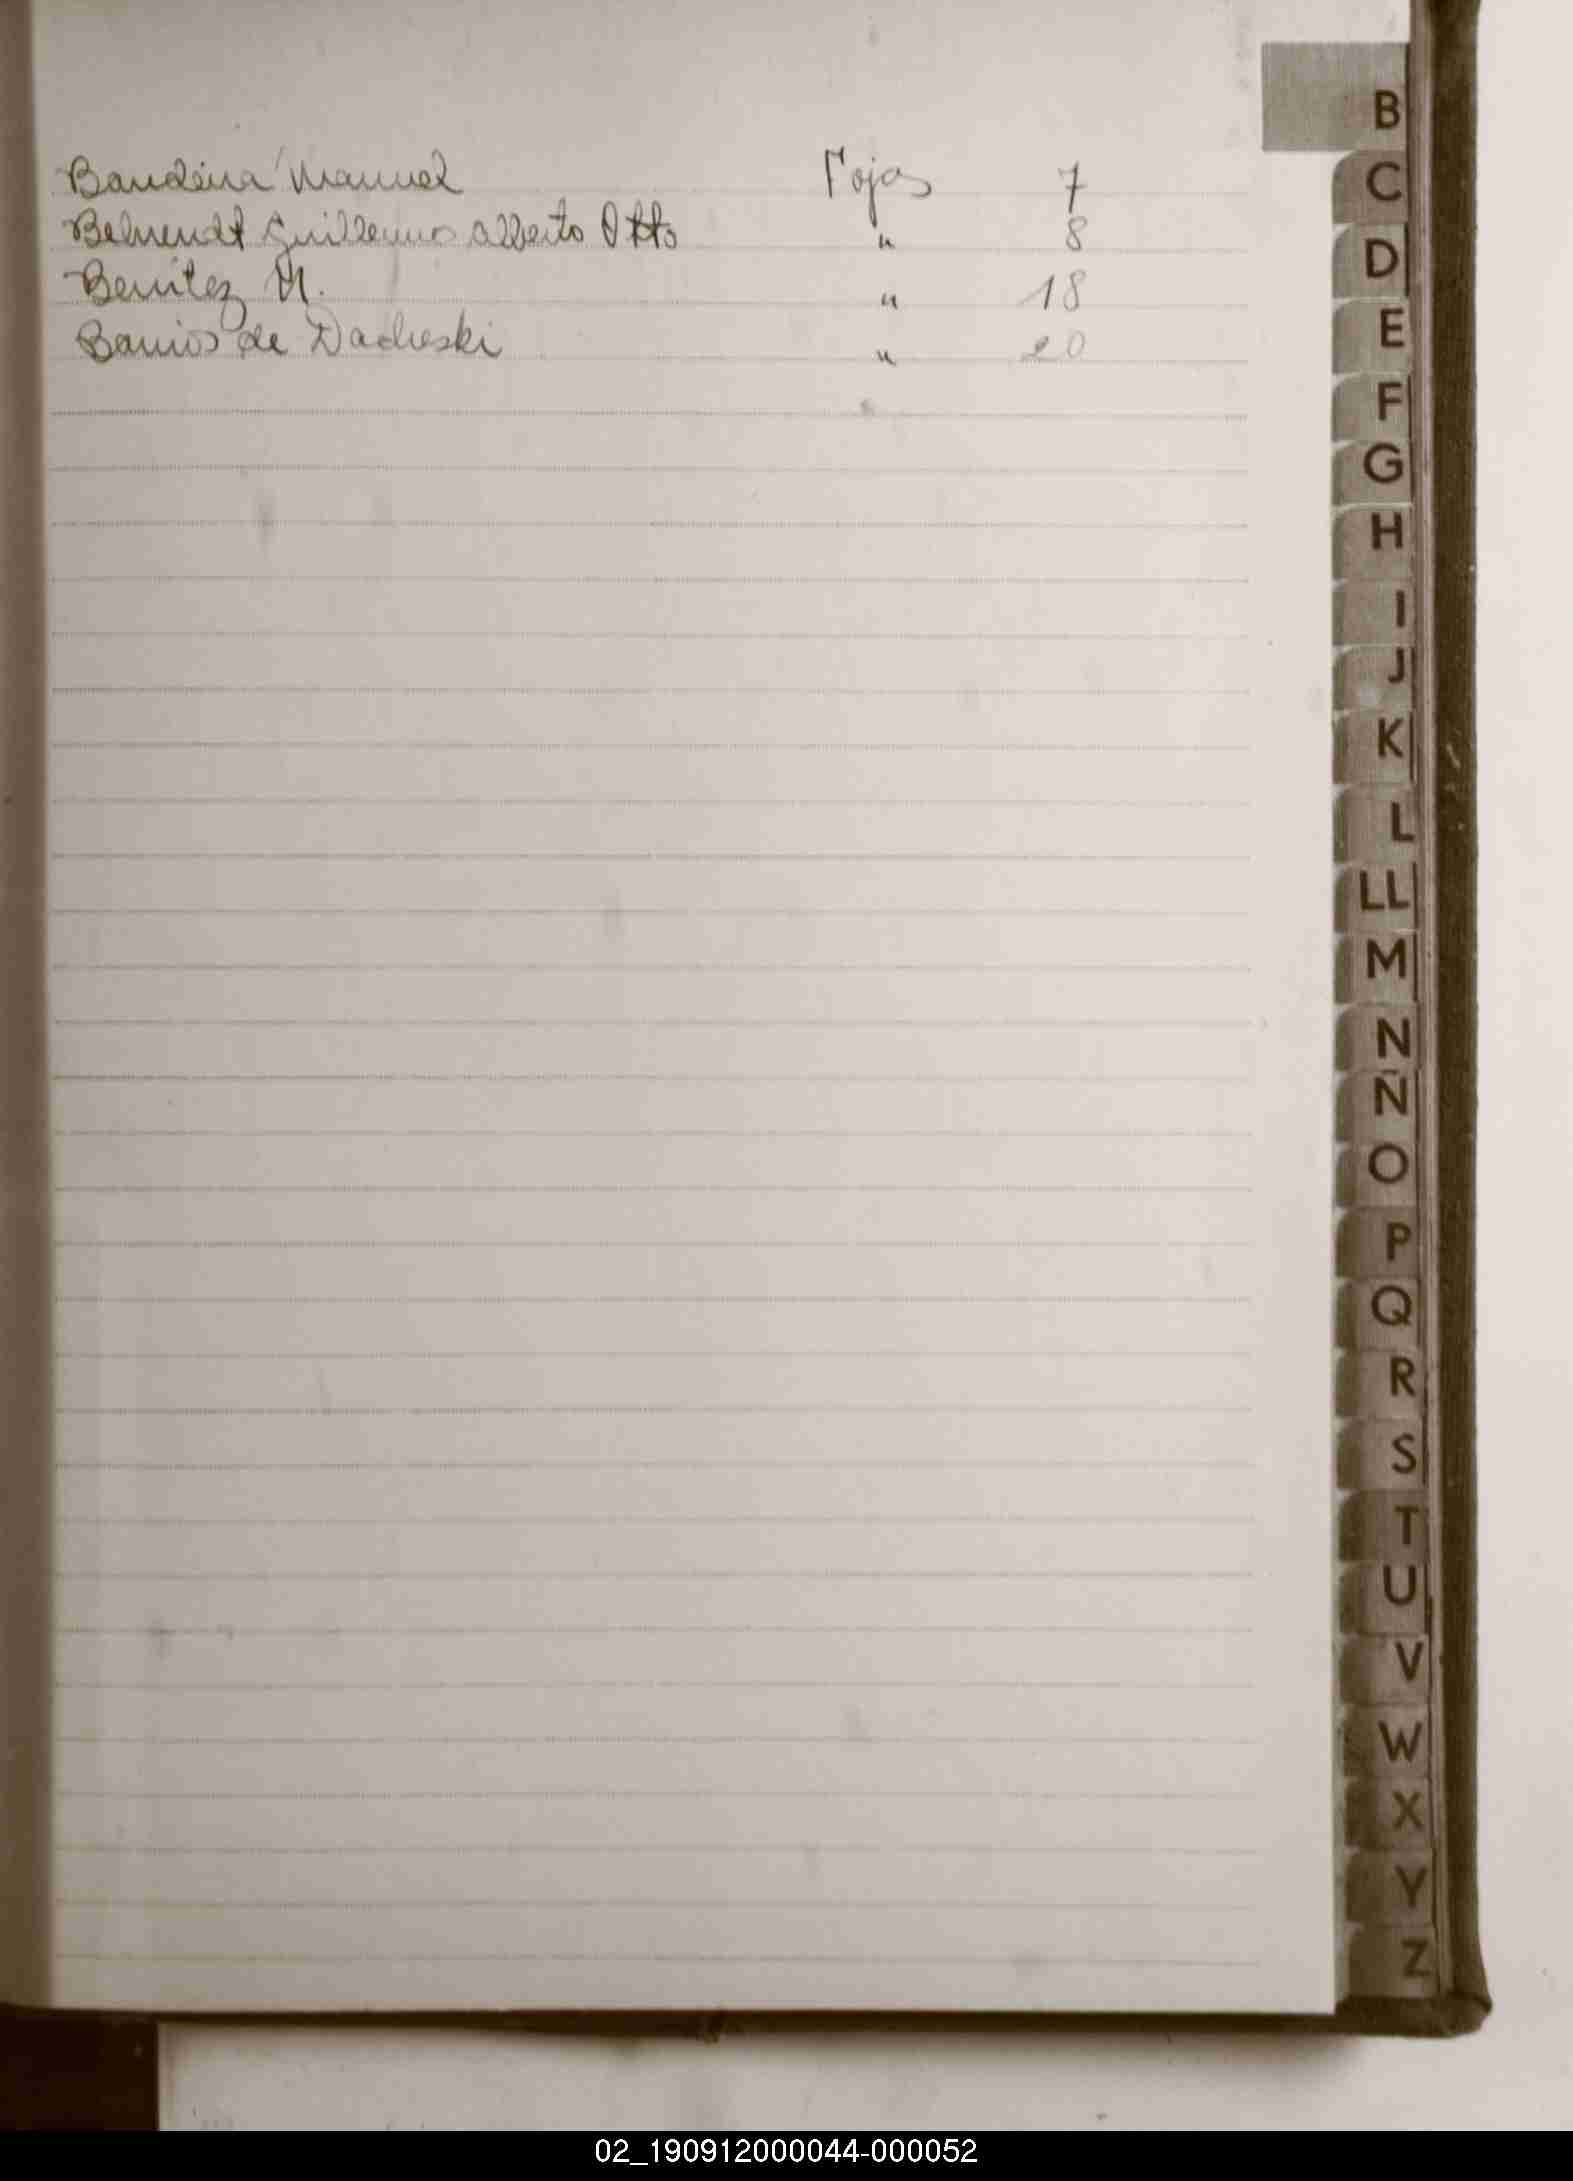 Bandeira Manuel Fojas 7
Behrendt Guillermo Alberto Otto " 8
Benitez M. " 18
Barrios de Dacheski " 20
B
C
D
E
F
G
H
I
J
K
L
LL
M
N
Ñ
O
P
Q
R
S
T
U
V
W
X
Y
Z
02_190912000044-000052